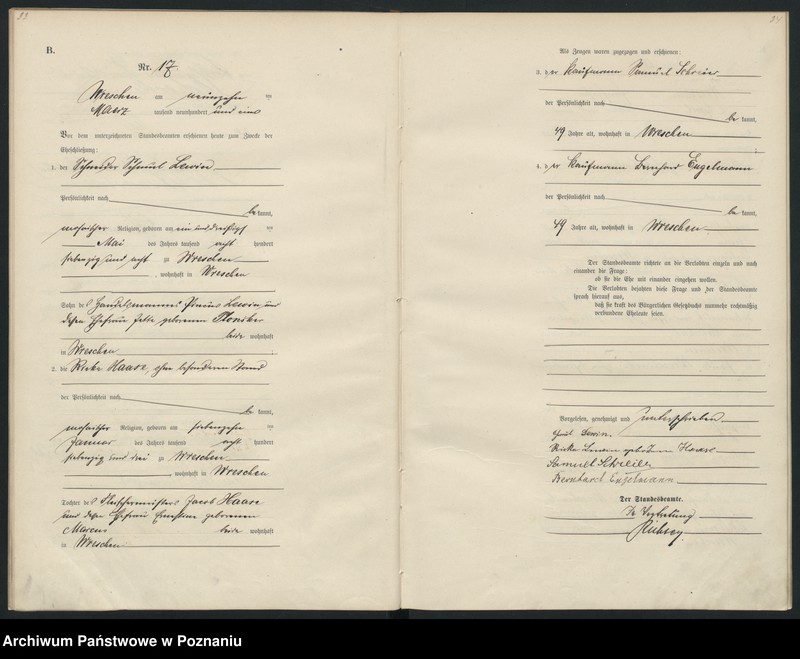 23
B.
Nr. 17.
Wreschen am neunzehnten
Maerz tausend neunhundert und eins
Vor dem unterzeichneten Standesbeamten erschienen heute zum Zwecke der
Eheschließung:
1. der Schneider Schmul Lewin
Persönlichkeit nach
be kannt,
mosaischer Religion, geboren am ein und dreißigsten
Mai des Jahres tausend acht hundert
siebenzig und acht zu Wreschen
, wohnhaft in Wreschen
Sohn des Handelsmannes Lewin und
dessen Ehefrau geborenen
beide wohnhaft
in Wreschen
2. die Rieke Haase, ohne besonderen Stand
der Persönlichkeit nach
be kannt,
mosaischer Religion, geboren am siebenzehnten
Januar des Jahres tausend acht hundert
siebenzig und drei zu Wreschen
, wohnhaft in Wreschen
Tochter des Fleischermeisters Jacob Haase
und dessen Ehefrau Ernestine geborenen
Marcus beide wohnhaft
in Wreschen
24
Als Zeugen waren zugezogen und erschienen:
3. der Kaufmann Samuel Schreier
der Persönlichkeit nach
be kannt,
49 Jahre alt, wohnhaft in Wreschen
4. der Kaufmann Bernhard Engelmann
der Persönlichkeit nach
be kannt,
49 Jahre alt, wohnhaft in Wreschen
Der Standesbeamte richtete an die Verlobten einzeln und nach
einander die Frage:
ob sie die Ehe mit einander eingehen wollen.
Die Verlobten bejahten diese Frage und der Standesbeamte
sprach hierauf aus,
daß sie kraft des Bürgerlichen Gesetzbuchs nunmehr rechtmäßig
verbundene Eheleute seien.
Vorgelesen, genehmigt und unterschrieben
Lewin.
Rieke Lewin geborene Haase
Samuel Schreier
Bernhard Engelmann
Der Standesbeamte.
In Vertretung
Archiwum Państwowe w Poznaniu